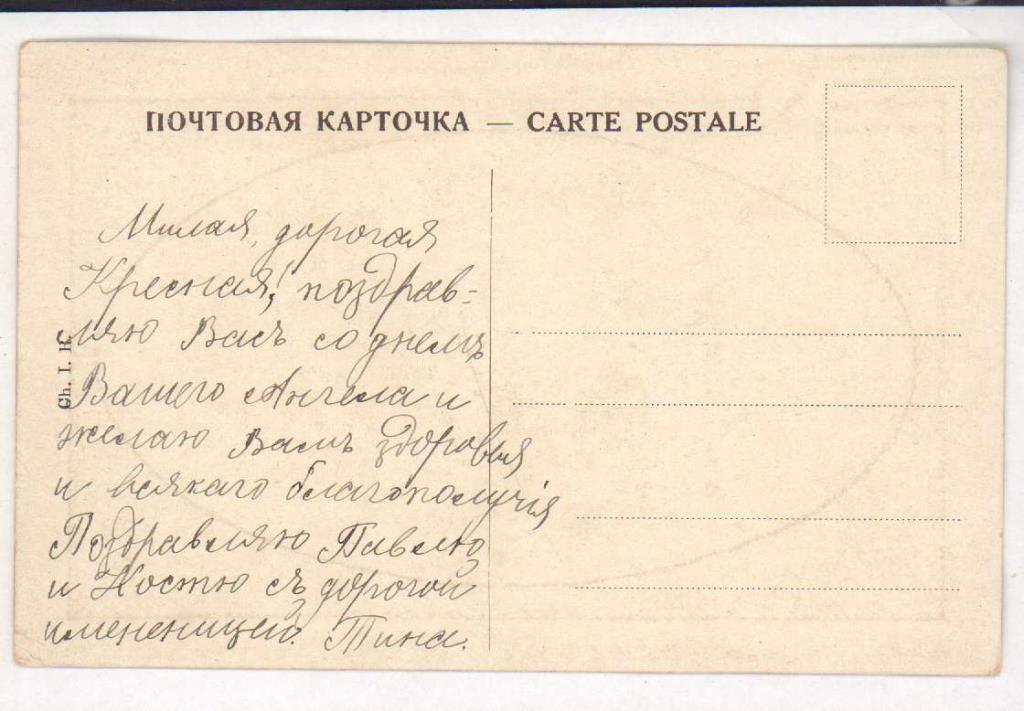 ПОЧТОВАЯ КАРТОЧКА — CARTE POSTALE
Милая, дорогая
Кресная! поздрав-
ляю Васъ со днемъ
Вашего Ангела и
желаю Вамъ здоровья
и всякаго благополучія
Поздравляю Павлю
и Костю съ дорогой
имененицей. Тина.
Ch. I. K.